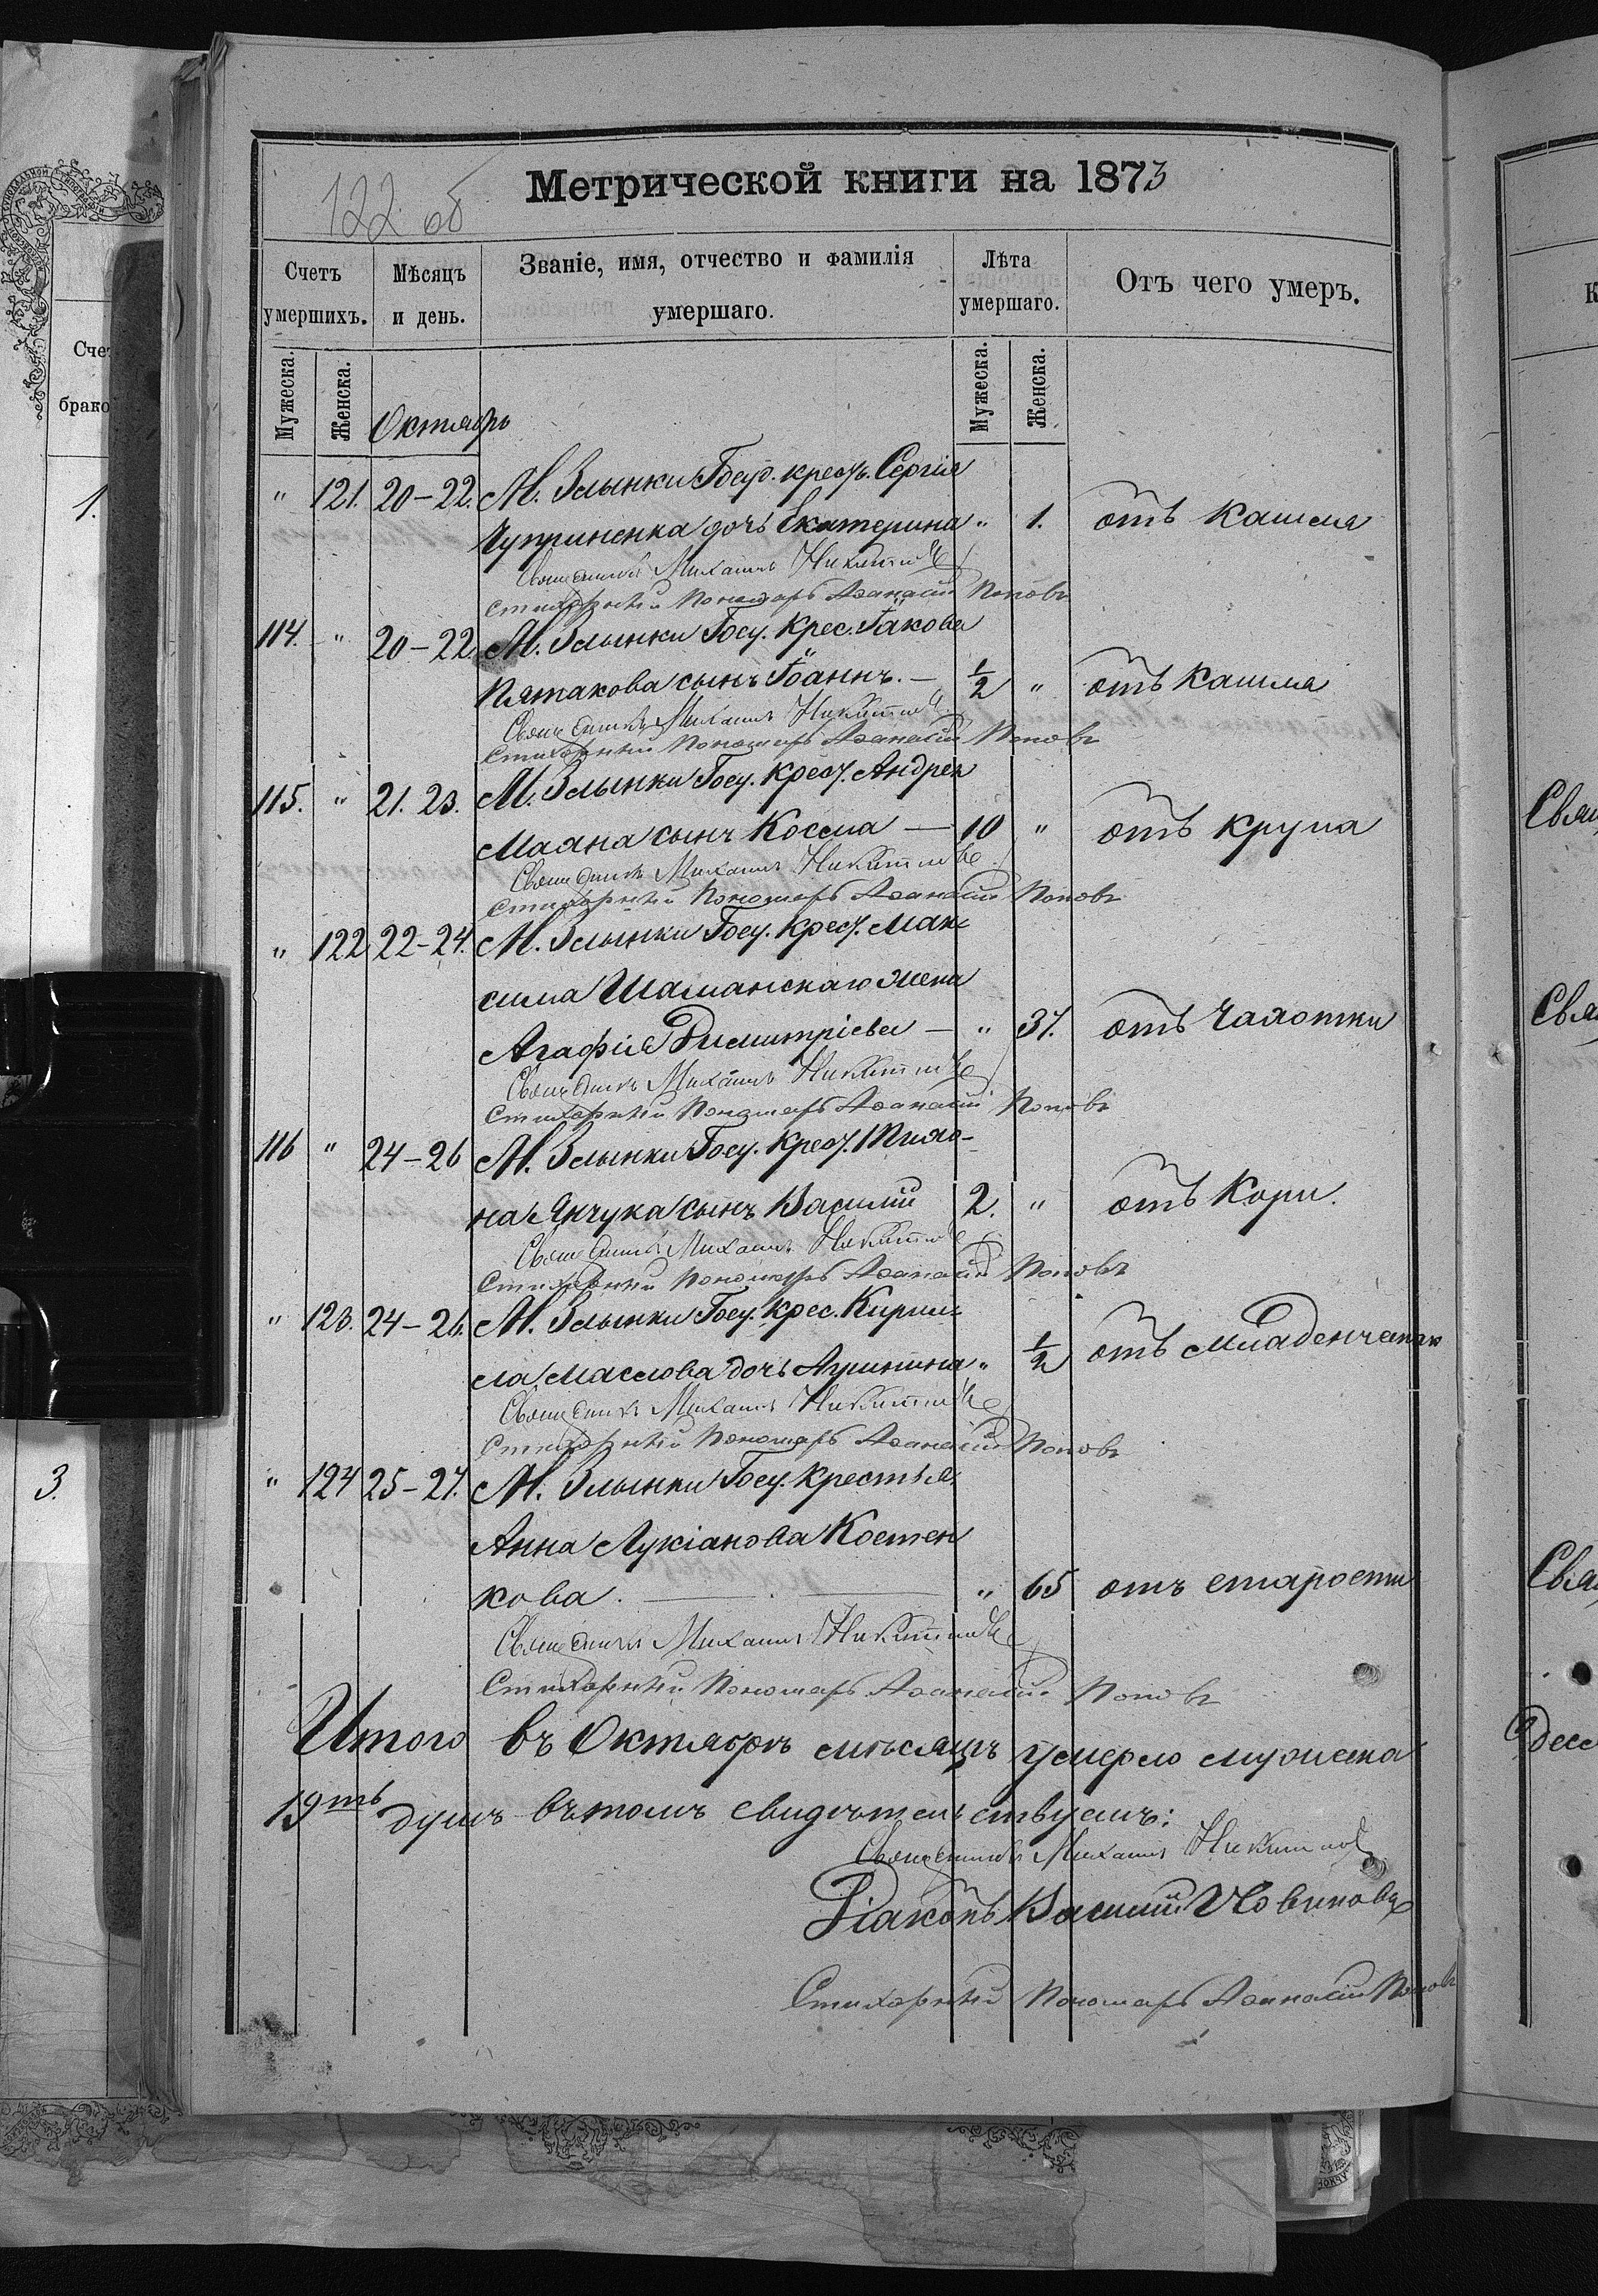 Метрической книги на 1873
122 об
Счетъ умершихъ.
Мѣсяцъ и день.
Званіе, имя, отчество и фамилія умершаго.
Лѣта умершаго.
Отъ чего умеръ.
Мужеска.
Женска.
Октябрь
Мужеска.
Женска.
" 121. 20-22. М. Злынки Госуд. крест. Сергія
Чуприненка дочь Екатерина " 1. отъ кашля
Священникъ Михаилъ Никитинъ
Стихарный Пономарь Аѳанасій Поповъ
114. " 20-22. М. Злынки Госу. Крес. Іакова
Пятакова сынъ Іоаннъ. — ½ " отъ кашля
Священникъ Михаилъ Никитинъ
Стихарный Пономарь Аѳанасій Поповъ
115. " 21. 23. М. Злынки Госу. Крест. Андрея
Маяна сынъ Косма — 10 " отъ крупа
Священникъ Михаилъ Никитинъ
Стихарный Пономарь Аѳанасій Поповъ
" 122 22-24. М. Злынки Госу. Крест. Мак=
сима Шаманскаго жена
Агафія Димитріева — " 37. отъ Чахотки
Священникъ Михаилъ Никитинъ
Стихарный Пономарь Аѳанасій Поповъ
116 " 24-26 М. Злынки Госу. Крест.
на Янчука сынъ Василій 2. " отъ Кори.
Священникъ Михаилъ Никитинъ
Стихарный Пономарь Аѳанасій Поповъ
" 123. 24-26. М. Злынки Госу. Крес. Кирил=
ла Маслова дочь Агрипина " ½ отъ
Священникъ Михаилъ Никитинъ
Стихарный Пономарь Аѳанасій Поповъ
" 124 25-27. М. Злынки Госу. Крестья.
Анна Лукіанова Костен
кова. — " 65 отъ старости
Священникъ Михаилъ Никитинъ
Стихарный Пономарь Аѳанасій Поповъ
Итого въ Октябрѣ мѣсяцѣ умерло мужеска
19ть душъ въ томъ свидѣтельствуемъ:
Священникъ Михаилъ Никитинъ
Діаконъ Василій Новиковъ
Стихарный Пономарь Аѳанасій Поповъ
Счет
брако
1.
3.